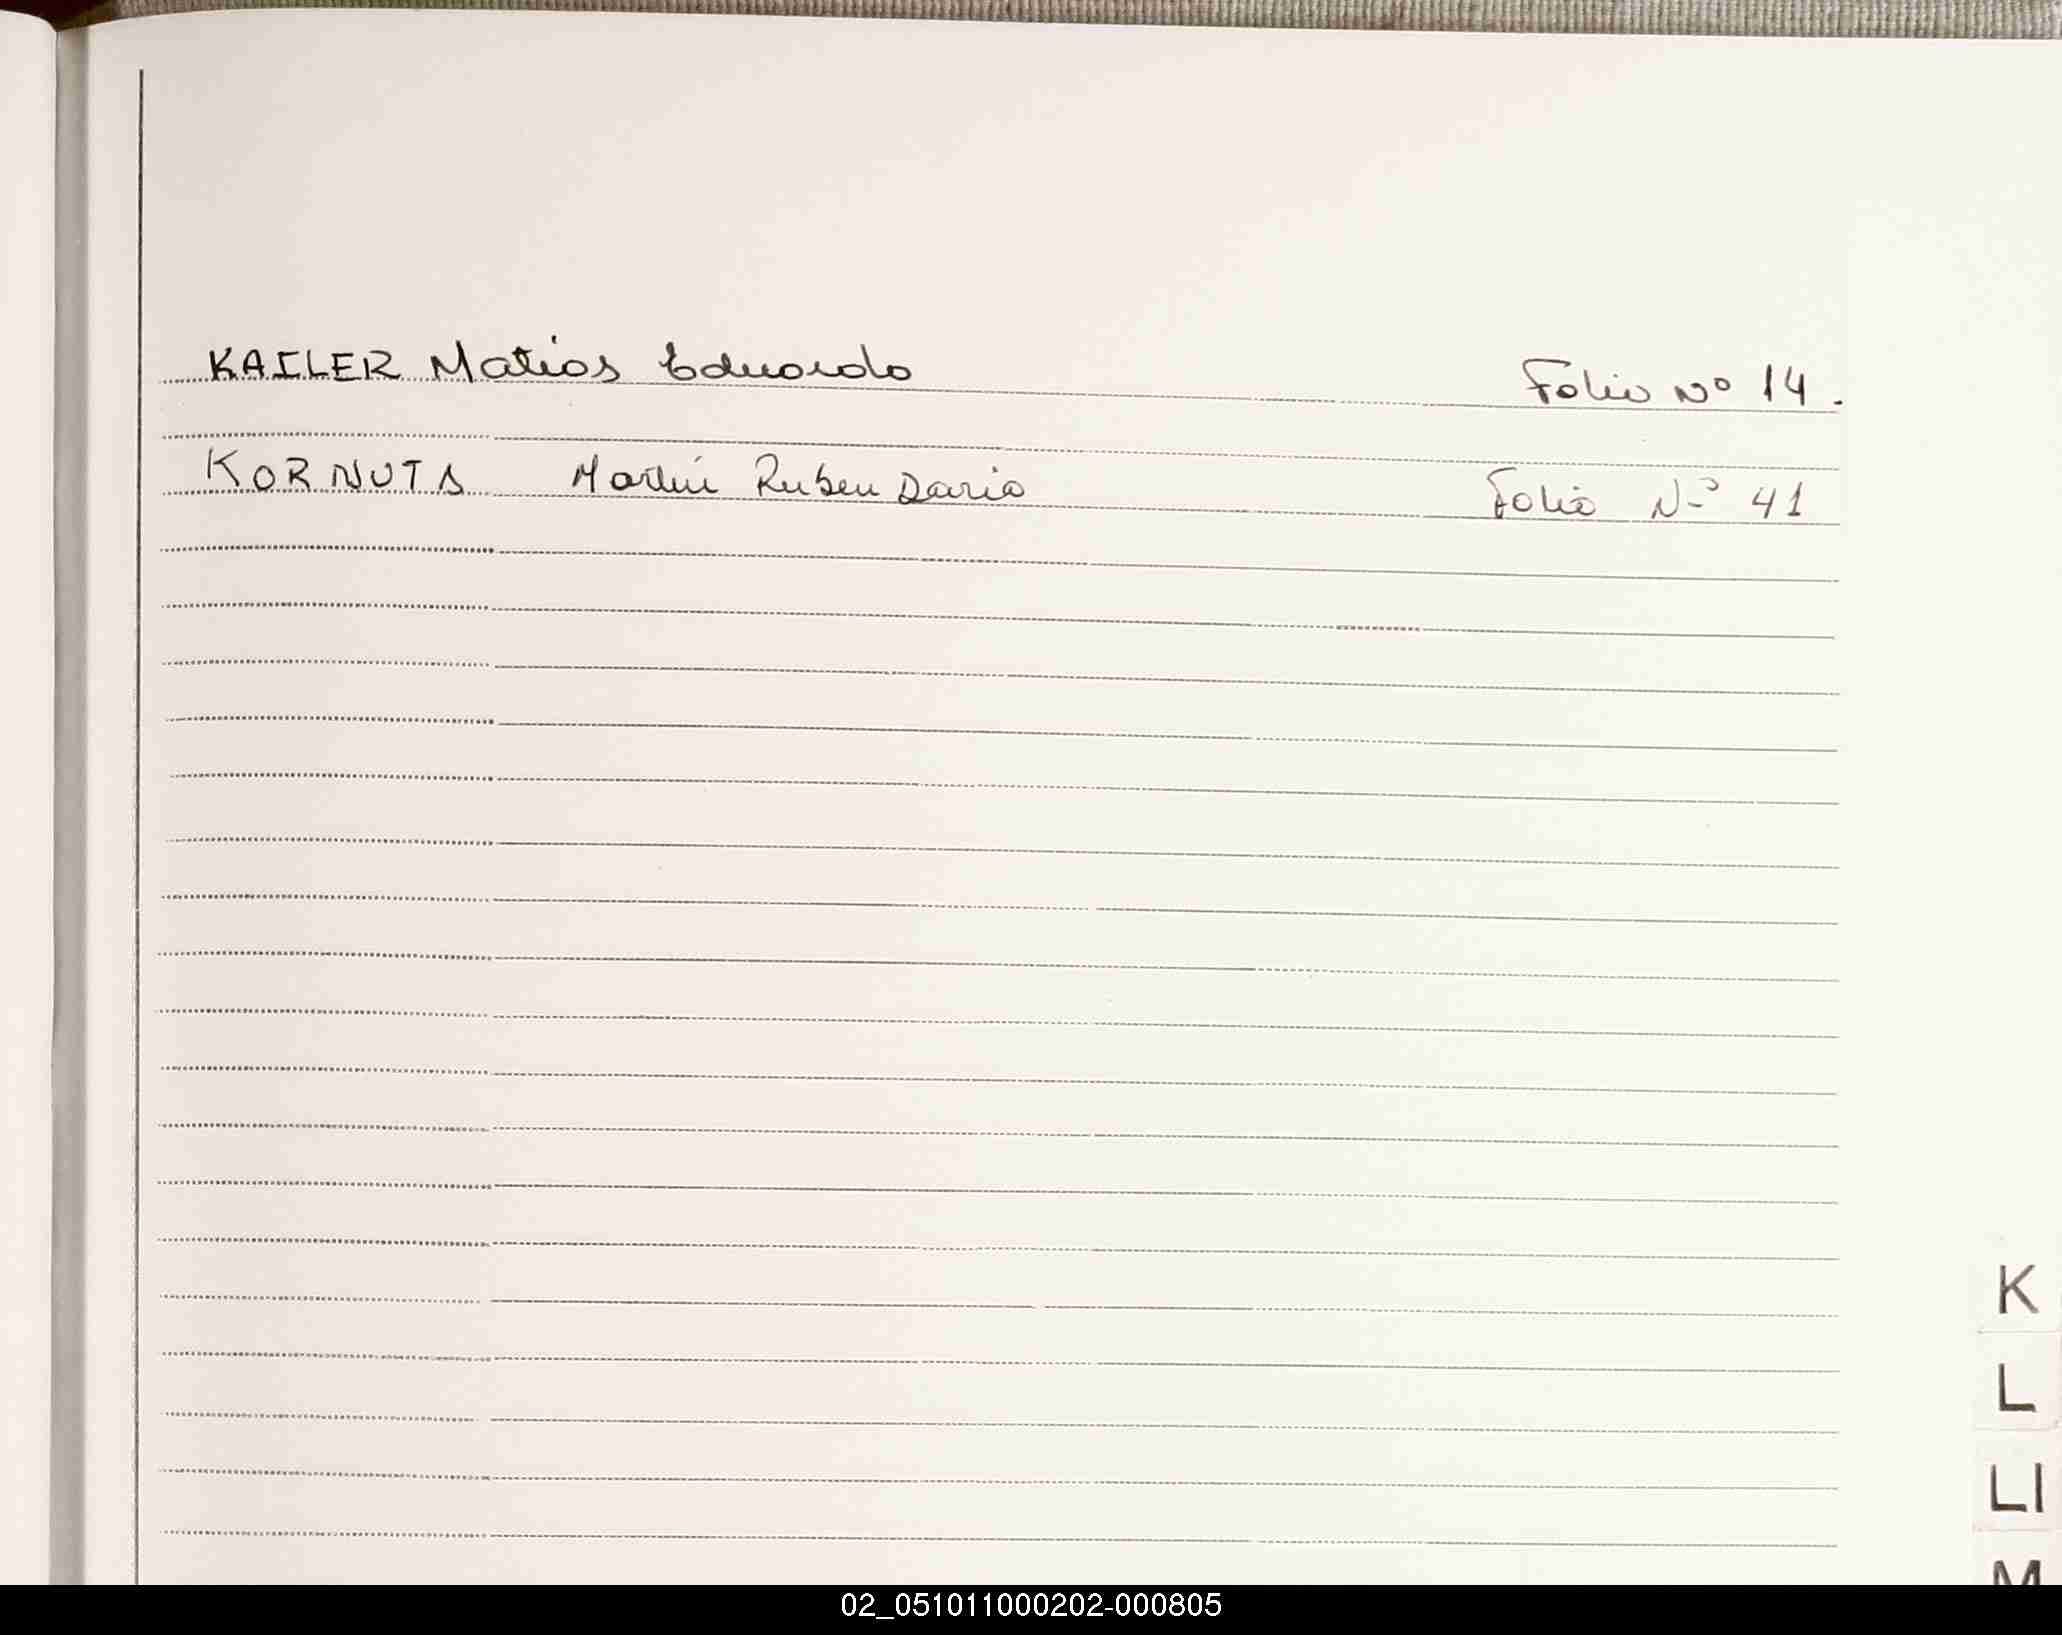 KAILER Matias Eduardo Folio Nº 14.
KORNUTA Martin Ruben Dario Folio Nº 41
K
L
Ll
M
02_051011000202-000805